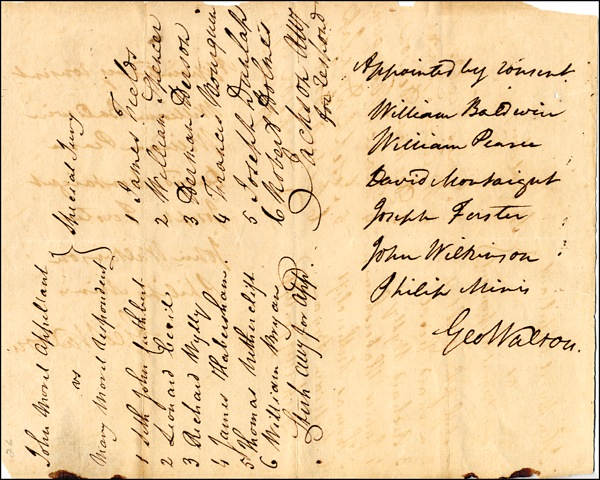 John Morel Appellant
vs
Mary Morel Respondent
} Special Jury
1 Seth John Cuthbert
2 Leonard Cecil
3 Richard Wylly
4 James Habersham
5 Thomas Netherclift
6 William Bryan
Stirk Atty for App.
1 James Fields
2 William Spencer
3 Herman Herson
4 Francis
5 Joseph Dunlap
6 Robert Holmes
Jackson Atty
for Respond
Appointed by consent
William Baldwin
William Pearce
David Montaigut
Joseph Ferster
John Wilkinson
Philip Minis
Geo Walton.